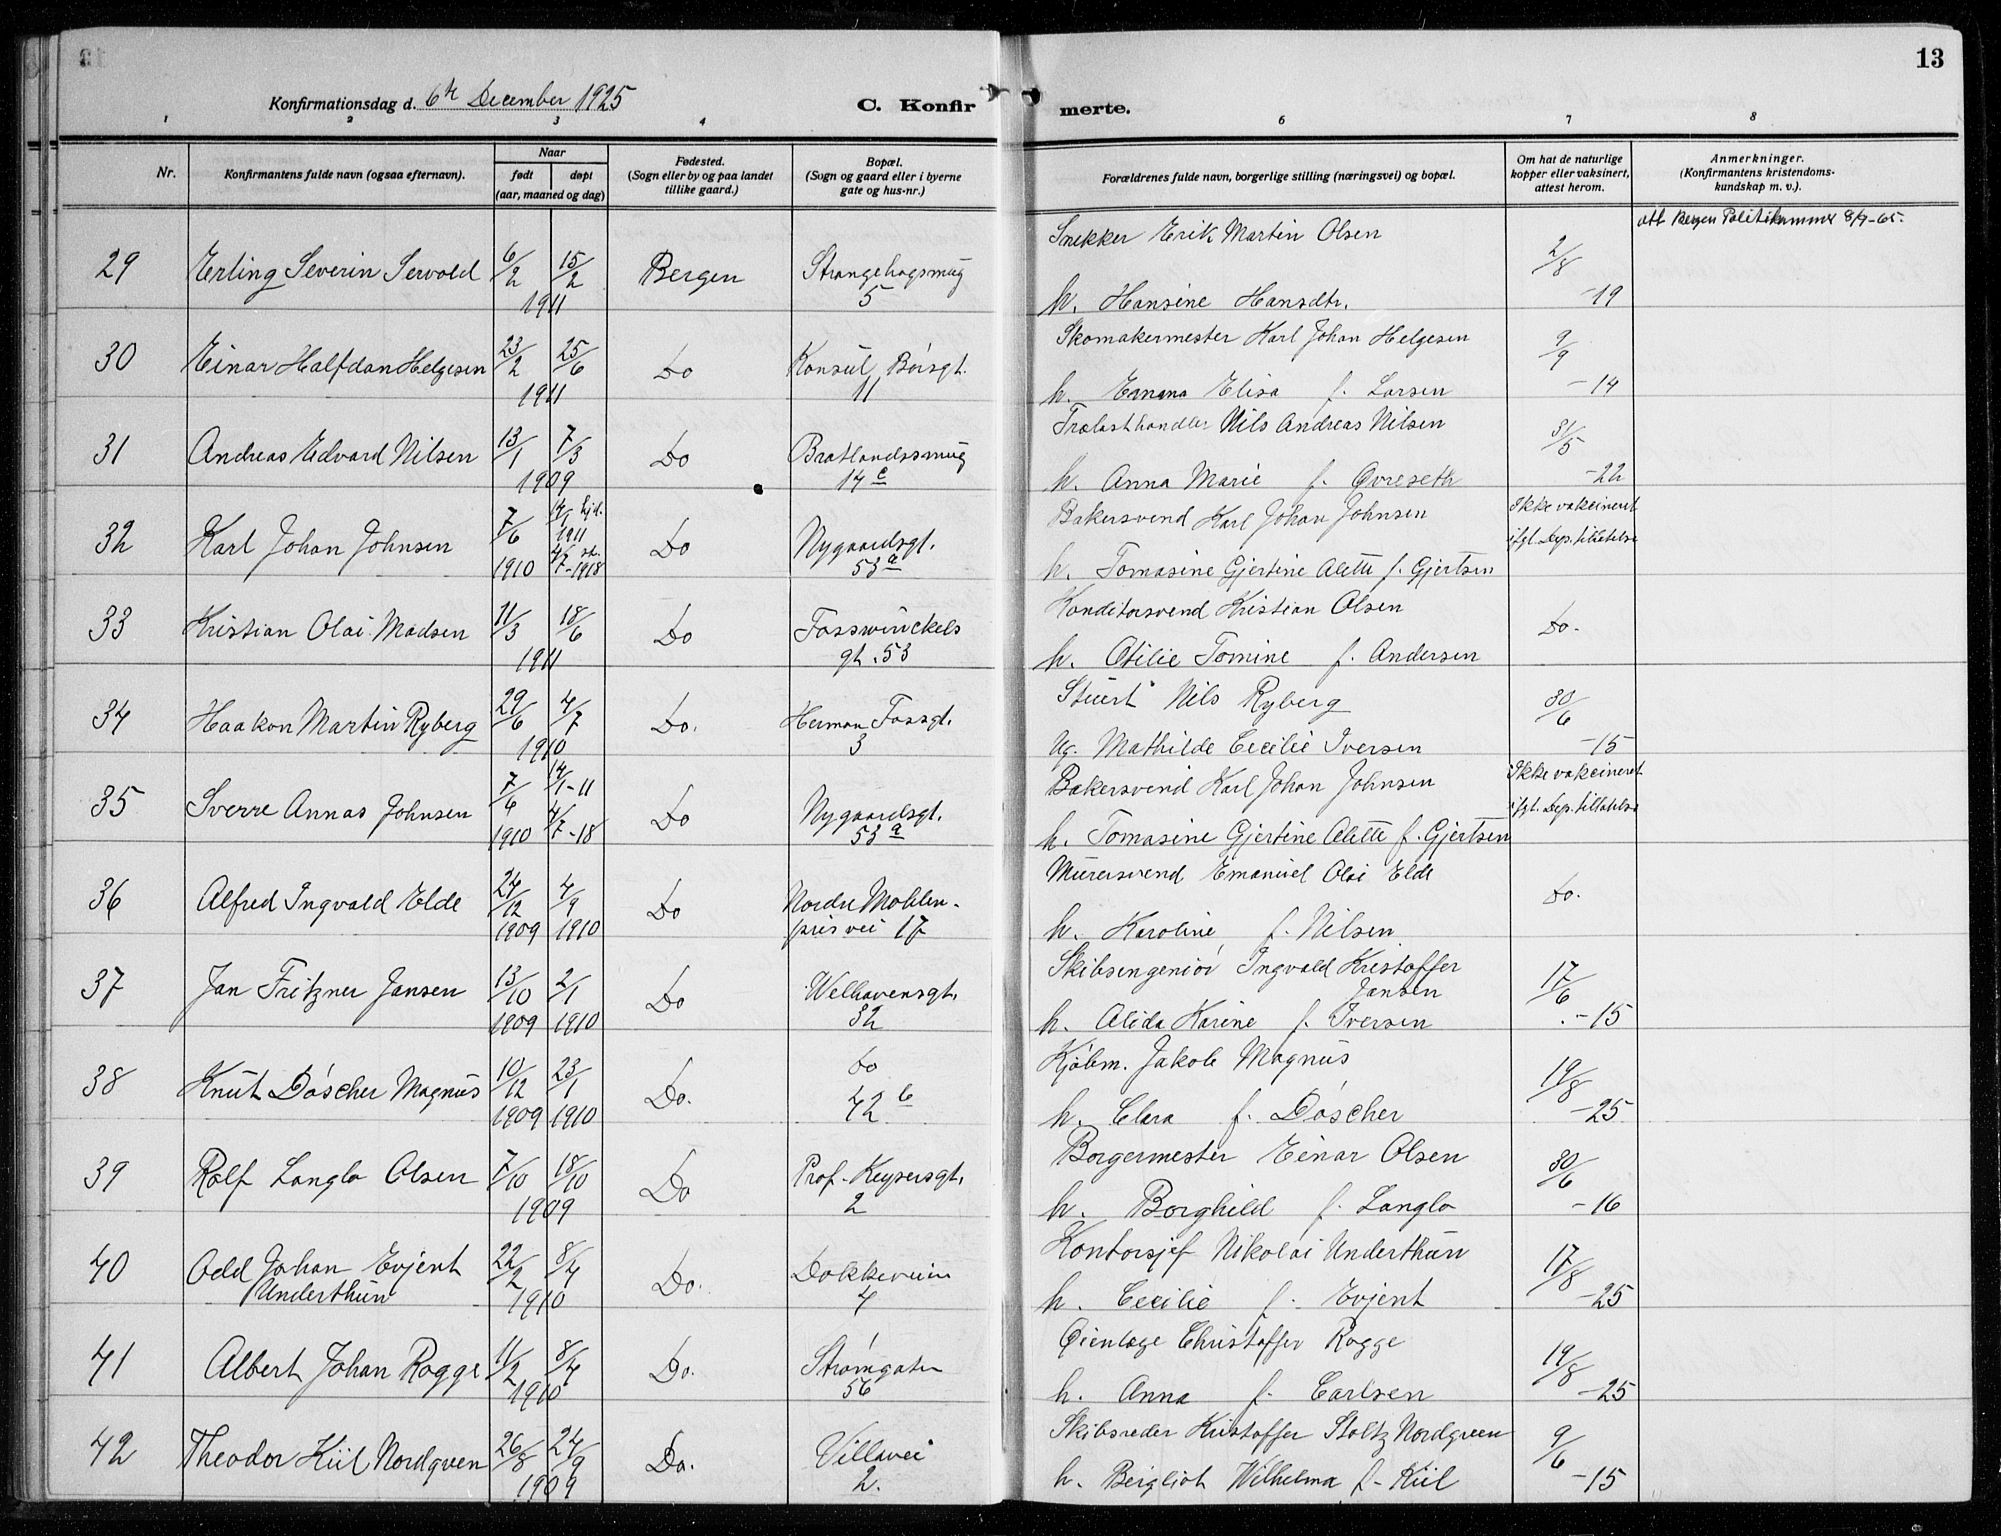 13
Konfirmationsdag d. 6te December 1925
C. Konfirmerte.
1 2 3 4 6 7 8
Nr.
Konfirmantens fulde navn (ogsaa efternavn).
Naar
født døpt
(aar, maaned og dag)
Fødested.
(Sogn eller by og paa landet
tillike gaard.)
Bopæl.
(Sogn og gaard eller i byerne
gate og hus-nr.)
Forældrenes fulde navn, borgerlige stilling (næringsvei) og bopæl.
Om hat de naturlige
kopper eller vaksinert,
attest herom.
Anmerkninger.
(Konfirmantens kristendoms-
kundskap m. v.).
att Bergen Politikammer 8/9-65.
29 Erling Severin Servold 6/2 15/2 1911 Bergen Strangehagsmug 5
Snekker Erik Martin Olsen 2/8
h. Hansine Hansdtr. -19
30 Einar Halfdan Helgesen 23/2 25/6 1911 Do Konsul Børsgt. 11
Skomakermester Karl Johan Helgesen 9/9
h. Emma Elisa f. Larsen -14
31 Andreas Edvard Nilsen 13/1 7/3 1909 Do Bratlandssmug 14 c
Trælasthandler Nils Andreas Nilsen 31/5
h. Anna Marie f. Øvreseth -22
32 Karl Johan Johnsen 7/6 1910 14/1 hjd. 1911 4/7 st. -1918 Do Nygaardsgt. 53 a
Bakersvend Karl Johan Johnsen Ikke vakcineret
h. Tomasine Gjertine Alette f. Gjertsen ifgl. Dep. tillatelse
33 Kristian Olai Madsen 11/3 18/6 1911 Do Fosswinckels gt. 53
Konditorsvend Kristian Olsen Do.
h. Otilie Tomine f. Andersen
34 Haakon Martin Ryberg 29/6 4/7 1910 Do. Herman Fossgt. 3
Stuert Nils Ryberg 30/6
Ug. Mathilde Cecilie Iversen -15
35 Sverre Annas Johnsen 7/6 1910 14/1-11 4/7-18 Do Nygaardsgt. 53 a
Bakersvend Karl Johan Johnsen Ikke vakcineret
h. Tomasine Gjertine Alette f. Gjertsen ifgt. Dep. tillatelse
36 Alfred Ingvald Elde 24/12 1909 4/9 1910 Do Nordre Møhlen-
prisvei 17
Murersvend Emanuel Olai Elde Do.
h. Karoline f. Nilsen
37 Jan Fritzner Jansen 13/10 1909 2/1 1910 Do Welhavensgt. 32
Skibsingeniør Ingvald Kristoffer
Jansen 17/6
h. Alida Karine f. Iversen -15
38 Knut Döscher Magnus 10/12 1909 23/1 1910 Do. do 42 b
Kjøbm. Jakob Magnus 19/8
h. Clara f. Döscher -25
39 Rolf Langlo Olsen 7/10 18/10 1909 Do Prof. Keysersgt. 2
Borgermester Einar Olsen 30/6
h. Borghild f. Langlo -16
40 Odd Johan Evjent
Underthun 22/2 8/4 1910 Do. Dokkeveien 4
Kontorsjef Nikolai Underthun 17/8
h. Cecilie f. Evjent -25
41 Albert Johan Rogge 11/2 8/4 1910 Do. Strømgaten 56
Øienlæge Christoffer Rogge 19/8
h. Anna f. Carlsen -25
42 Theodor Kiil Nordgreen 26/8 24/9 1909 Do. Villavei 2.
Skibsreder Kristoffer Stoltz Nordgreen 9/6
h. Bergliot Wilhelma f. Kiil -15